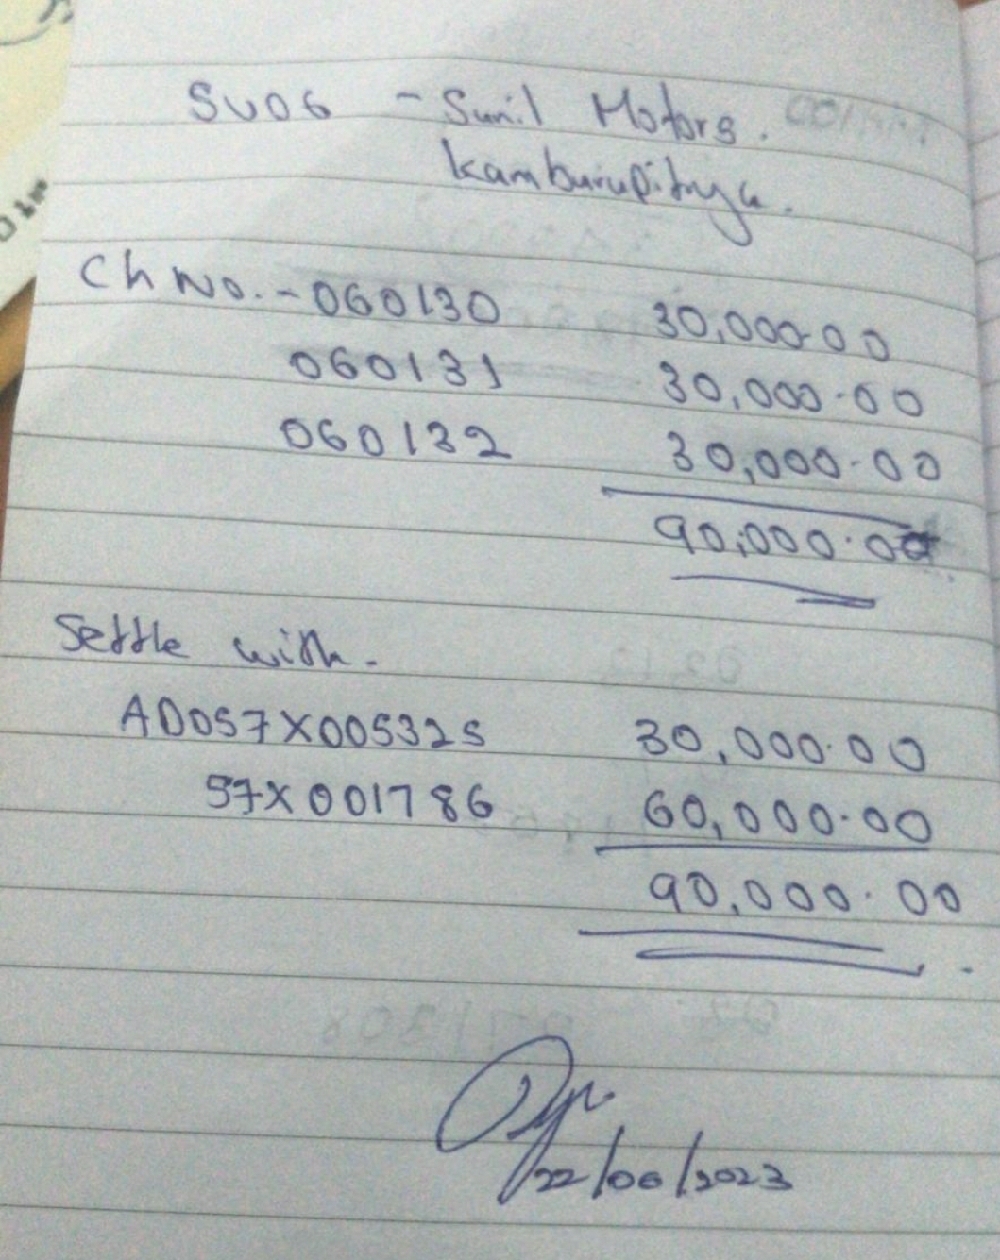 SU06 - Sunil Motors.
Kamburupitiya.
Ch No. - 060130 30,000.00
060131 30,000.00
060132 30,000.00
90,000.00
Settle with -
AD057X005325 30,000.00
57X001786 60,000.00
90,000.00
22/06/2023